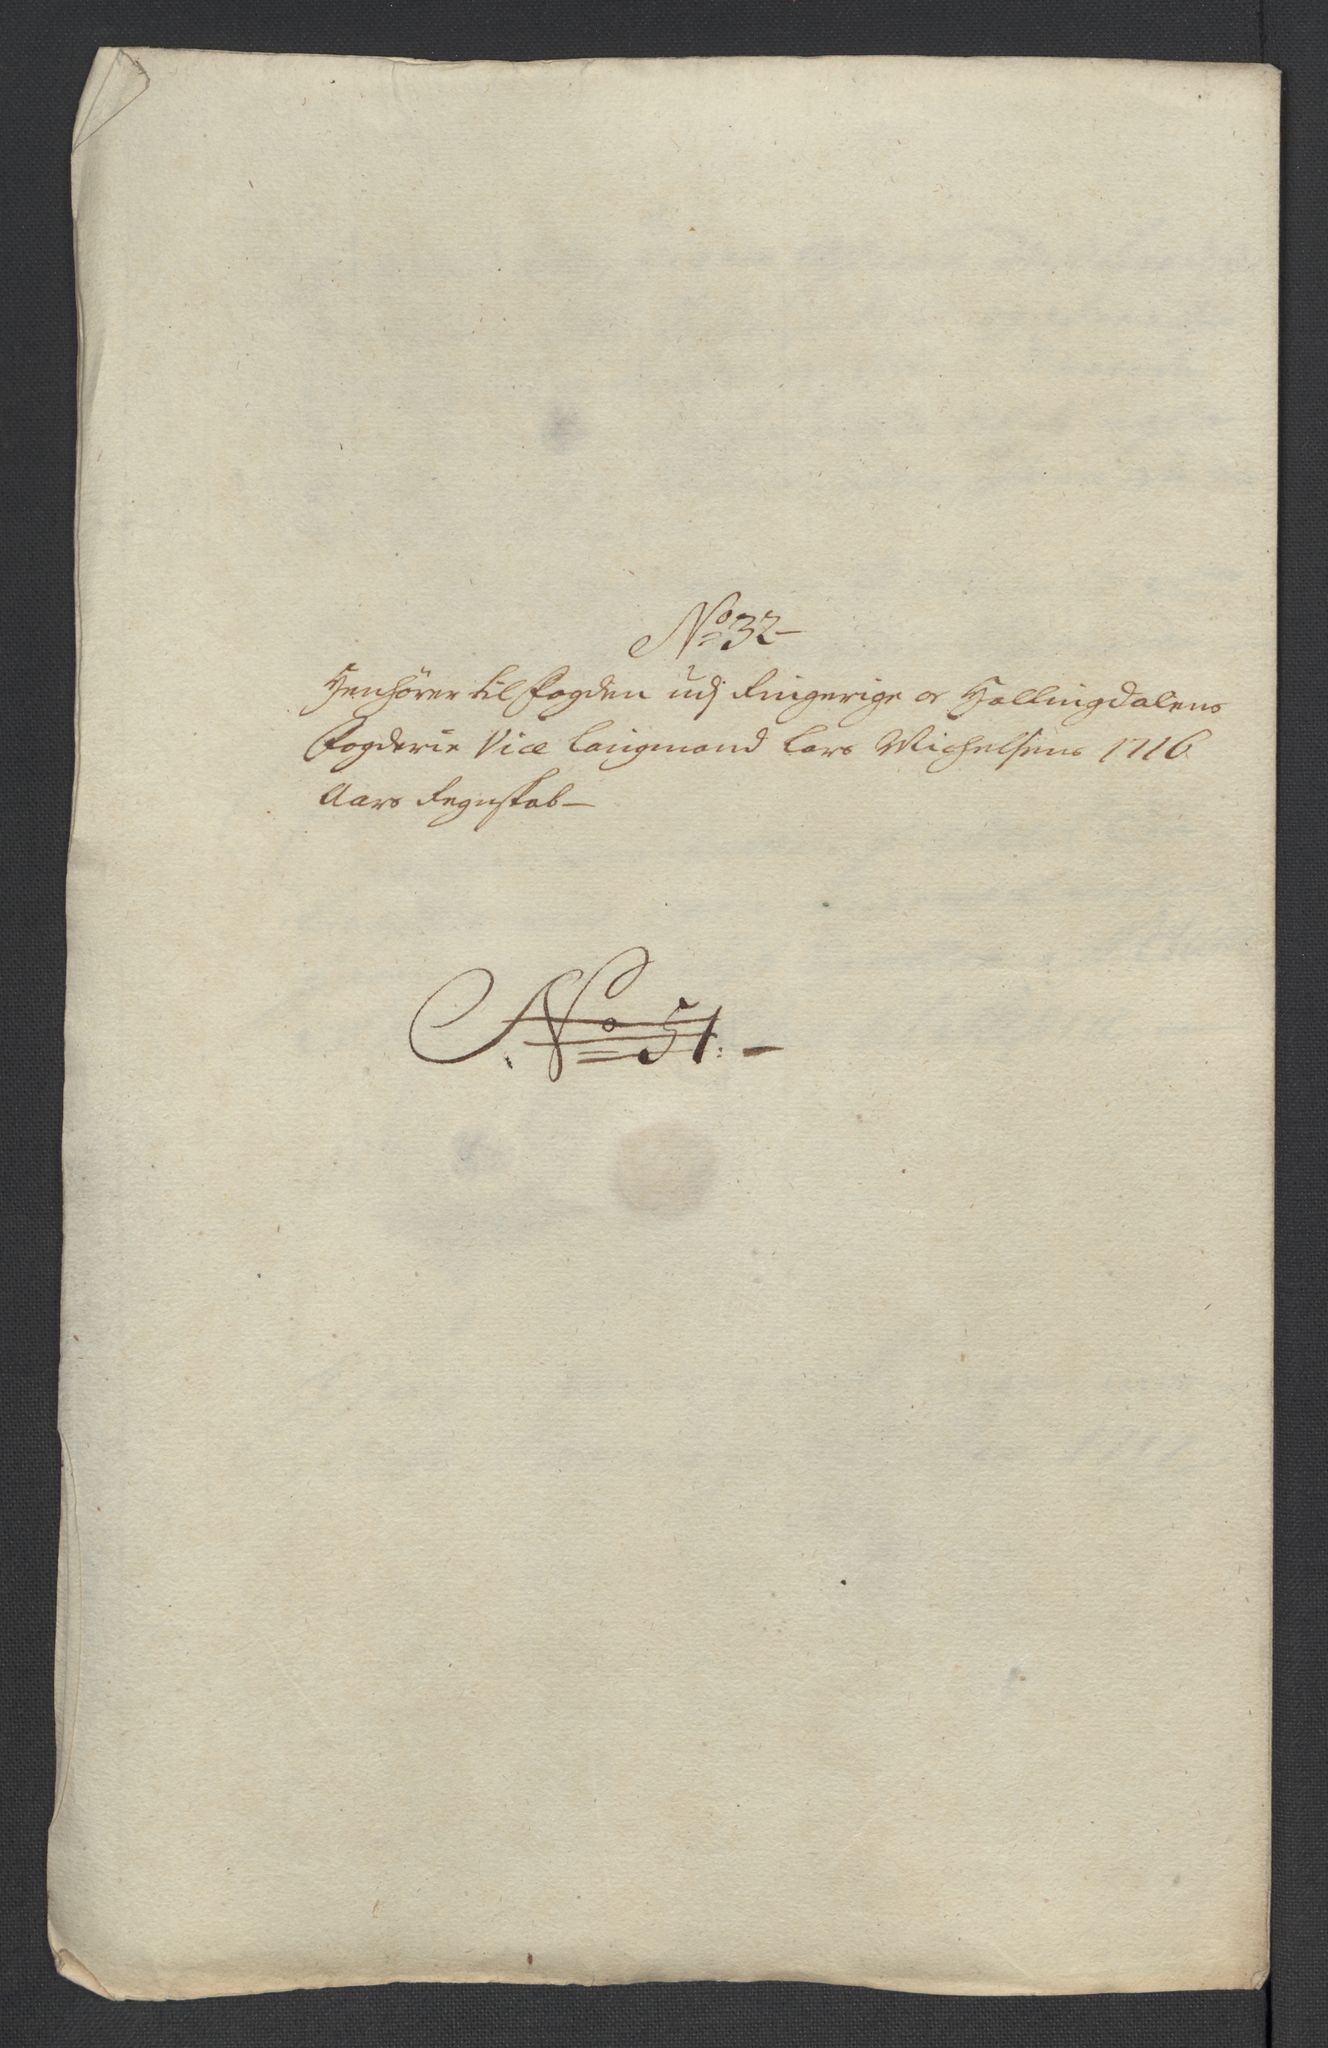 No 32
Henhörer til fogden udj Ringerige og Hallingdalens
fogderie Vice laugmand Lars Michelsens 1716
Aars Regnskab
No 51.